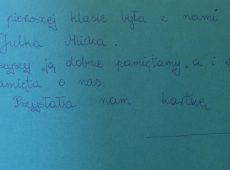 pierwszej klasie była z nami
Julka Micka.
ją dobrze pamiętamy, a i
pamięta o nas.
Przysłała nam kartkę